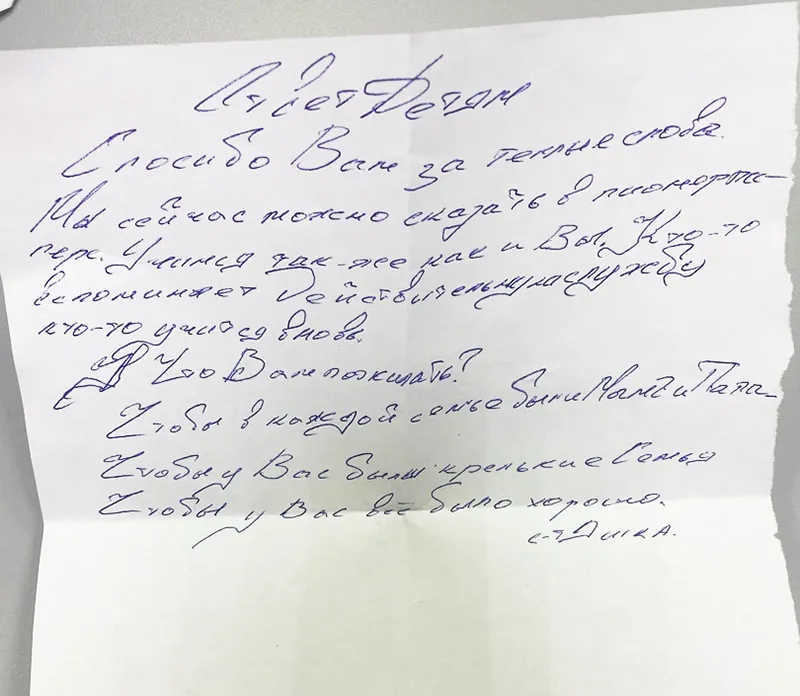 Ответ Детям
Спосибо Вам за теплые слова.
Мы сейчас можно сказать в пионерла-
гере. Учимся так-же как и Вы. Кто-то
вспоминает действительную службу
кто-то учится вновь.
Что Вам пожилать?
Чтобы в каждой семье были Мама и Папа
Чтобы у Вас были крепкие Семья
Чтобы у Вас всё было хорошо.
с-т